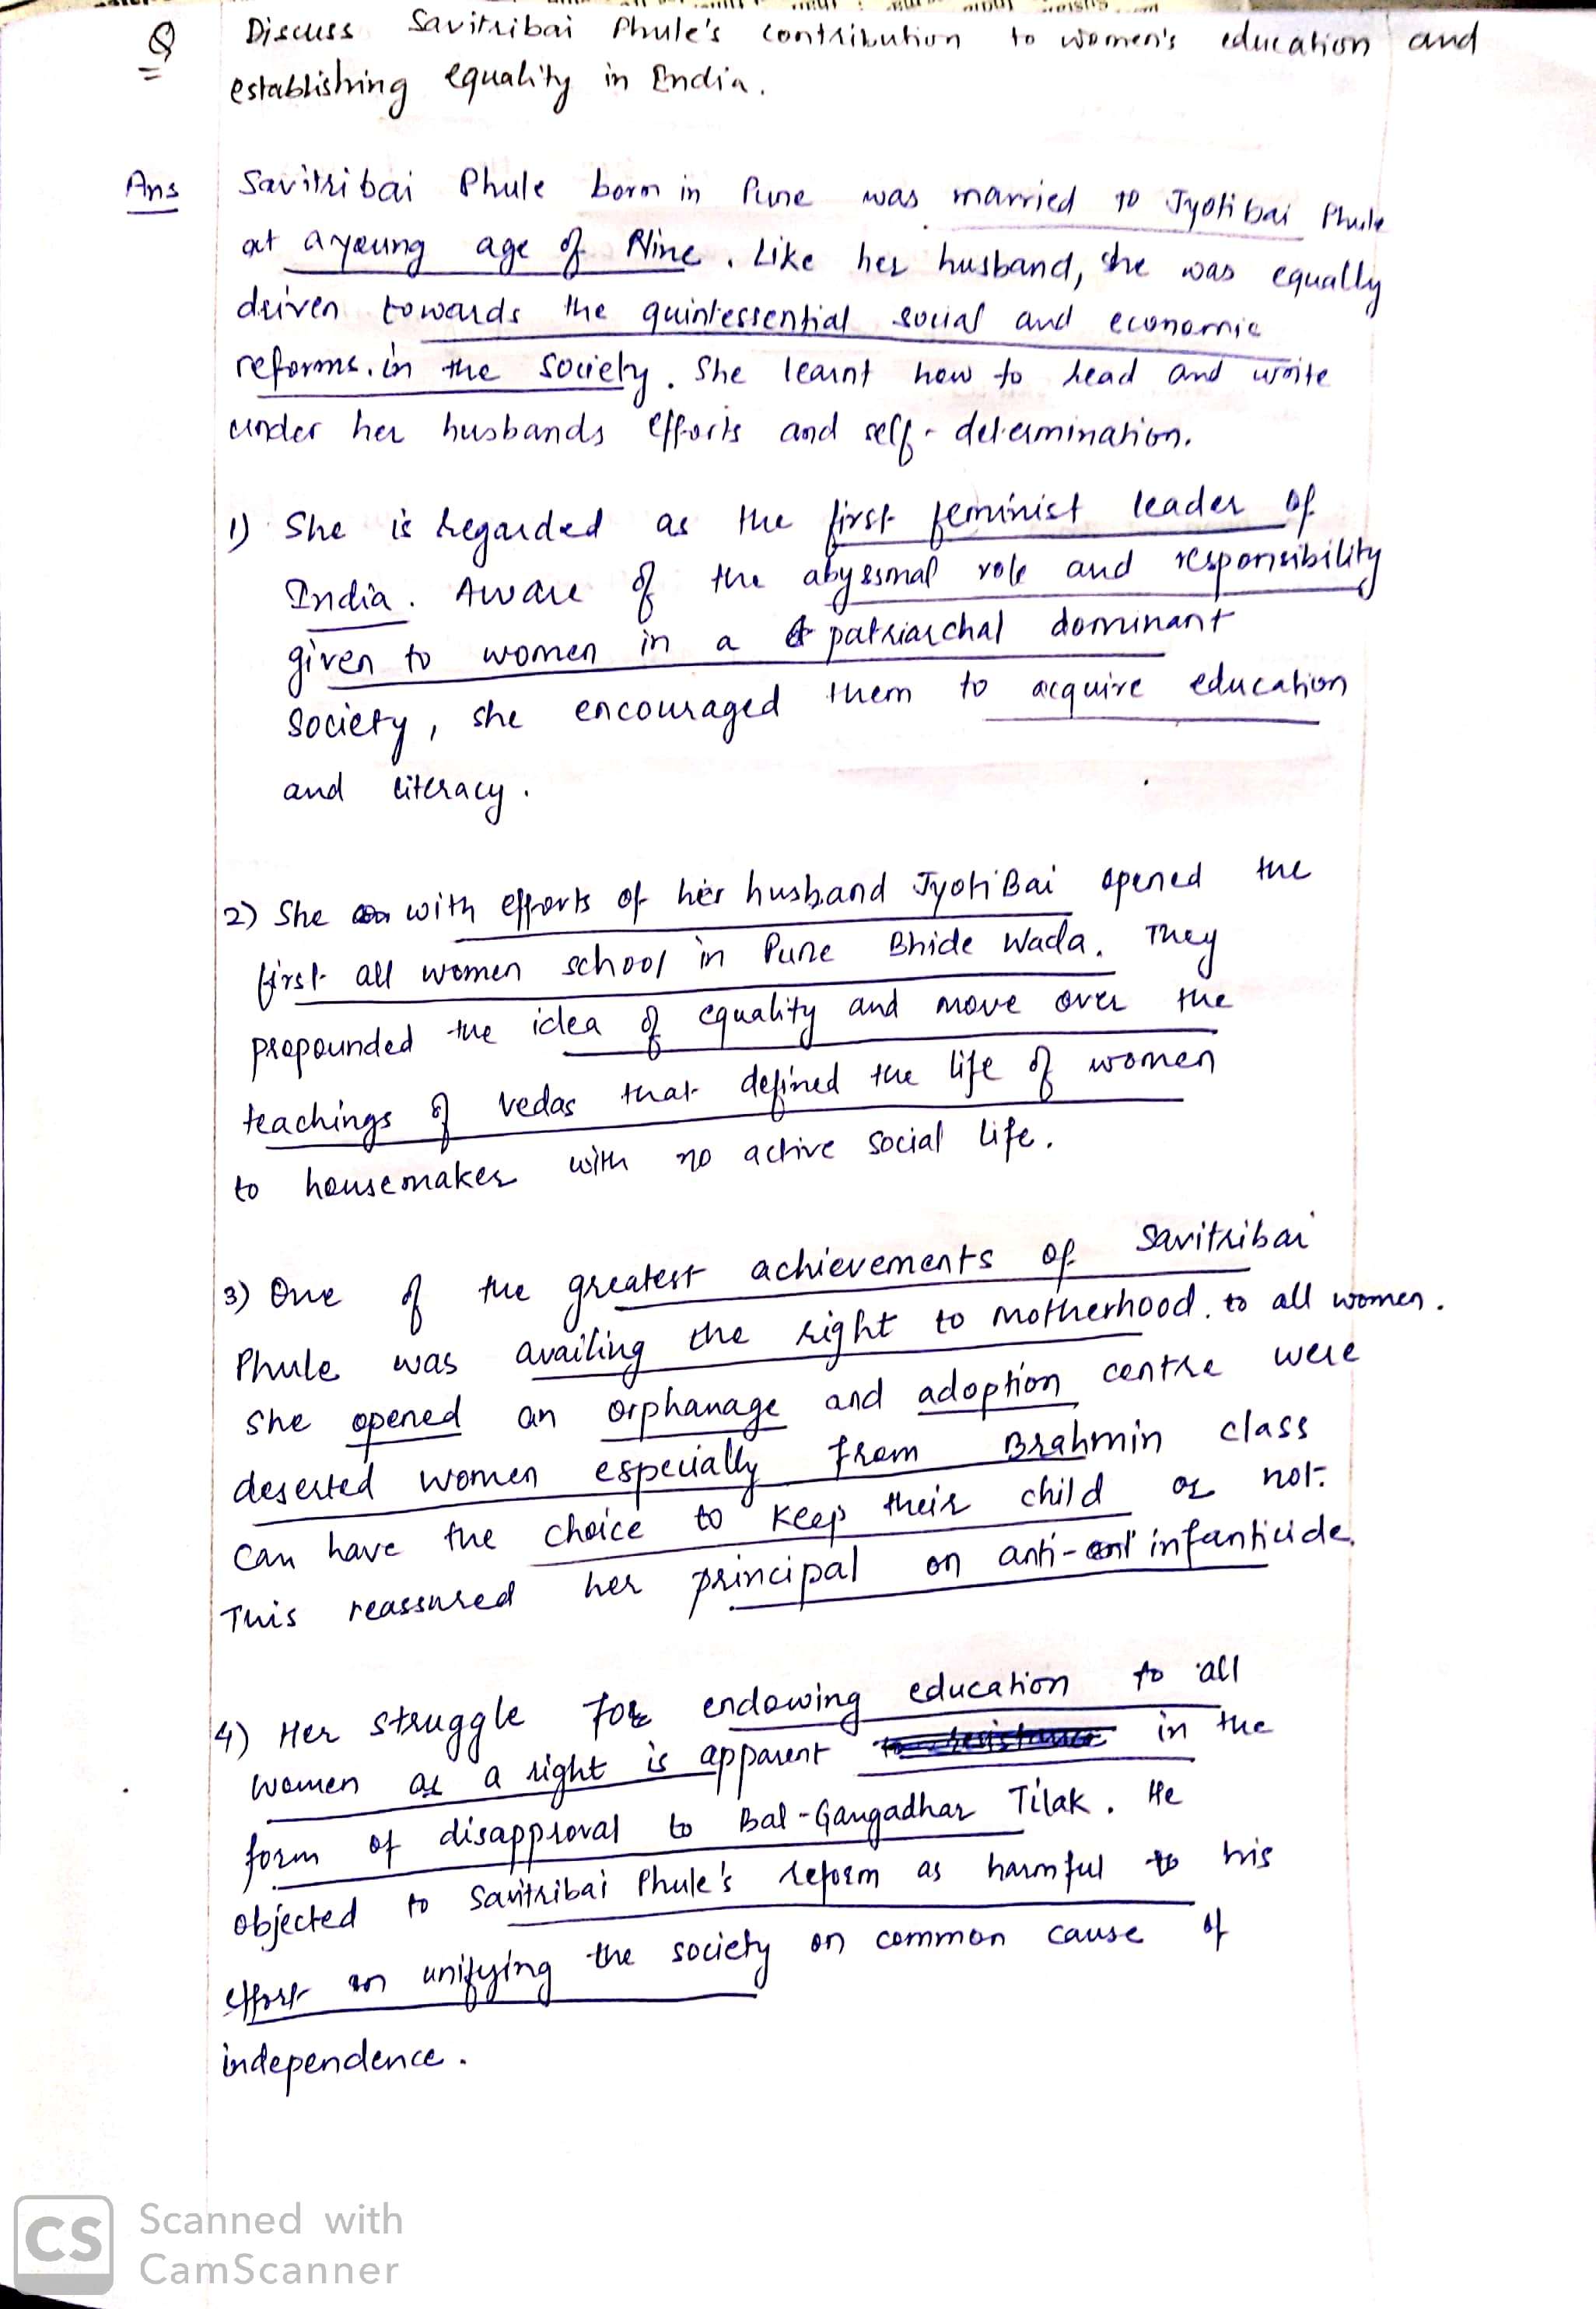 Q Discuss Savitribai Phule's contribution to women's education and
establishing equality in India.
Ans Savitribai Phule born in Pune was married to Jyotibai Phule
at a young age of Nine. Like her husband, she was equally
driven towards the quintessential social and economic
reforms. in the society. She learnt how to read and write
under her husbands efforts and self-determination.
1) She is regarded as the first feminist leader of
India. Aware of the abyssmal role and responsibility
given to women in a patriarchal dominant
society, she encouraged them to acquire education
and literacy.
2) She with efforts of her husband JyotiBai opened the
first all women school in Pune Bhide Wada. They
propounded the idea of equality and move over the
teachings of vedas that defined the life of women
to housemaker with no active social life.
3) One of the greatest achievements of Savitribai
Phule was availing the right to motherhood. to all women.
She opened an orphanage and adoption centre were
deserted women especially from Brahmin class
can have the choice to keep their child or not.
This reassured her principal on anti-infanticide.
4) Her struggle for endowing education to all
women as a right is apparent in the
form of disapproval to Bal-Gangadhar Tilak. He
objected to Savitribai Phule's reform as harmful to his
effort on unifying the society on common cause of
independence.
CS Scanned with
CamScanner